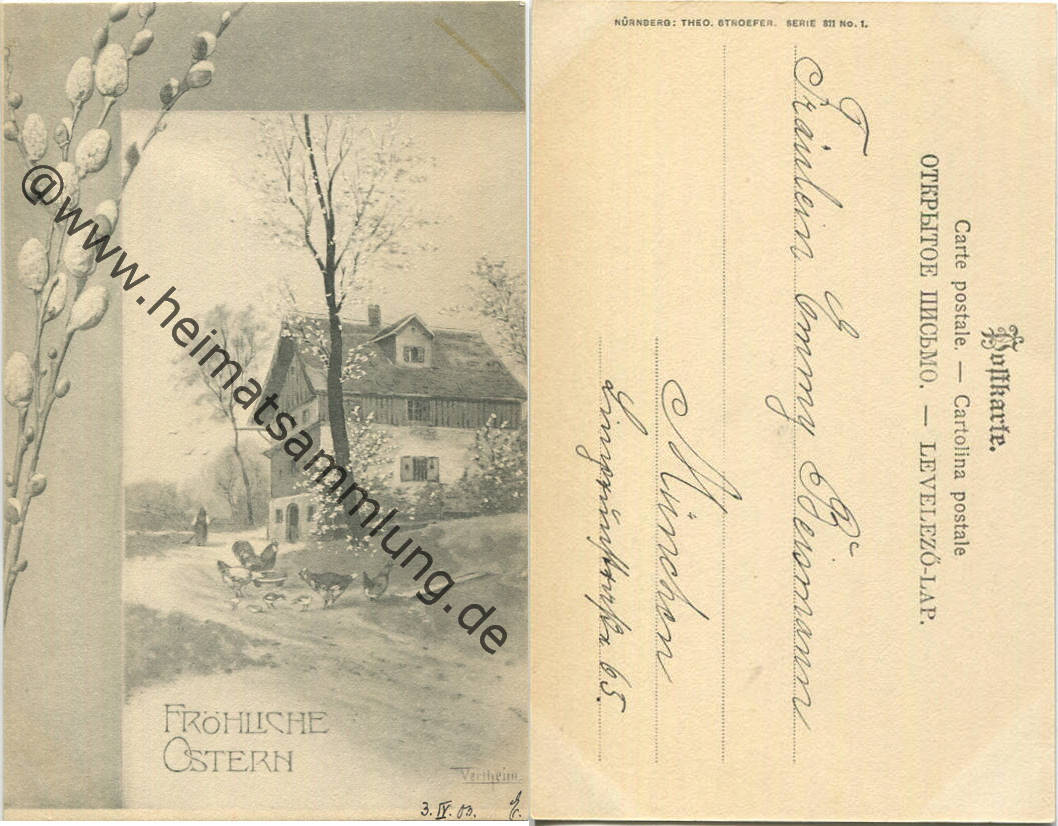 @www.heimatsammlung.de
FRÖHLICHE
OSTERN
Vertheim.
3. IV. 03.
NÜRNBERG: THEO. STROEFER. SERIE 811 No. 1.
Postkarte.
Carte postale. — Cartolina postale
ОТКРЫТОЕ ПИСЬМО. — LEVELEZŐ-LAP.
Fräulein Emmy Beismann
München
65.